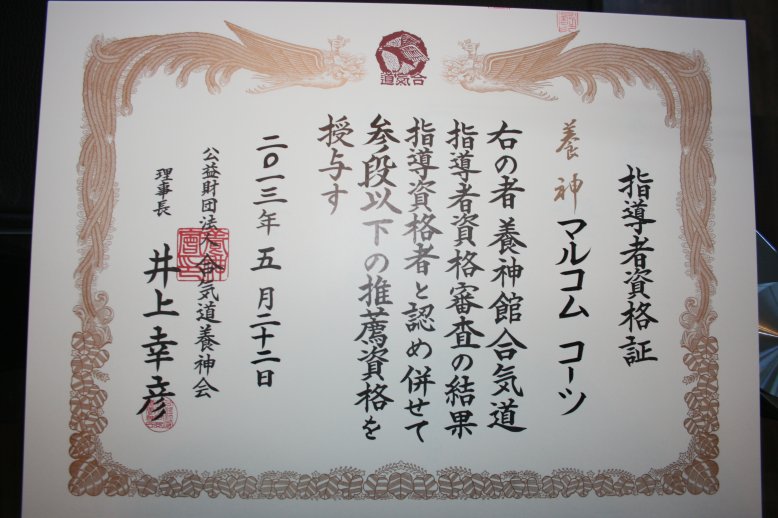 合気道
指導者資格証
養神 マルコム コーツ
右の者 養神館合気道
指導者資格審査の結果
指導資格者と認め併せて
参段以下の推薦資格を
授与す
二〇一三年 五 月二十二日
公益財団法人合気道養神会
理事長 井上幸彦